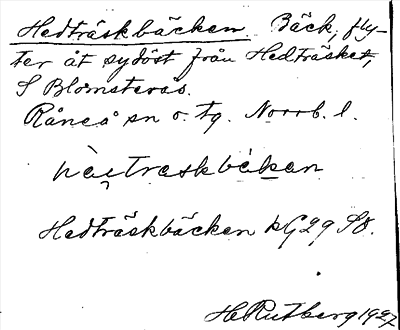 Hedträskbäcken. Bäck, fly-
ter åt sydöst från Hedträsket,
S Blomsterås.
Råneå sn o. tg. Norrb. l.
Hedträskbäcken kG29 SO.
H Rutberg 1927